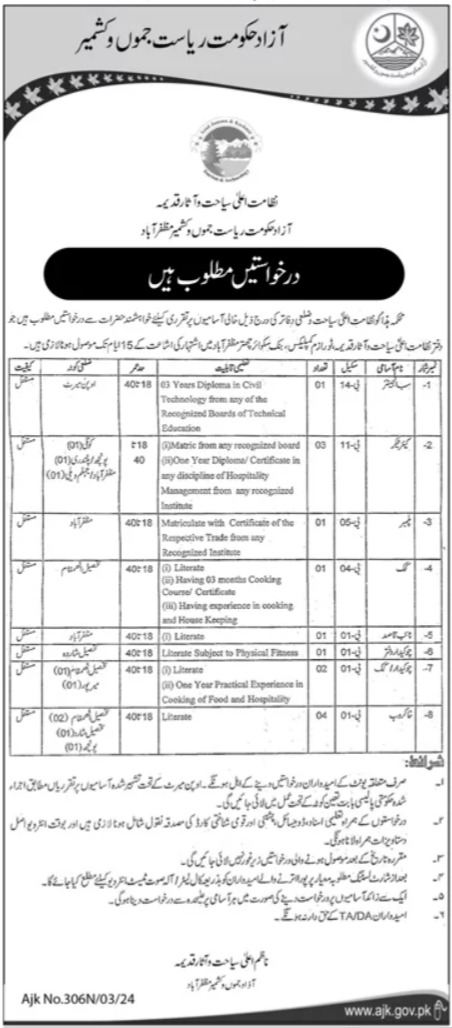 آزاد حکومت ریاست جموں و کشمیر
Azad Jammu & Kashmir
نظامت اعلیٰ سیاحت و آثار قدیمہ
آزاد حکومت ریاست جموں و کشمیر مظفرآباد
درخواستیں مطلوب ہیں
محکمہ ہذا کو نظامت اعلیٰ سیاحت و ضلعی دفاتر کی درج ذیل خالی آسامیوں پر تقرری کیلئے خواہشمند حضرات سے درخواستیں مطلوب ہیں جو
دفتر نظامت اعلیٰ سیاحت و آثار قدیمہ، ٹورازم کمپلیکس، بنک سکوائر چھتر مظفرآباد میں اشتہار کی اشاعت کے 15 ایام تک موصول ہونا لازمی ہیں۔
نمبر شمار نام آسامی سکیل تعداد تعلیمی قابلیت حد عمر ضلعی کوٹہ کیفیت
1- سب انجینئر بی-14 01 03 Years Diploma in Civil 18 تا 40 اوپن میرٹ مستقل
Technology from any of the
Recognized Boards of Technical
Education
2- کیئر ٹیکر بی-11 03 (i)Matric from any recognized board 18 تا کوٹلی (01) مستقل
(ii)One Year Diploma/ Certificate in 40 پونچھ/ پلندری (01)
any discipline of Hospitality مظفرآباد/ جہلم ویلی (01)
Management from any recognized
Institute
3- پلمبر بی-05 01 Matriculate with Certificate of the 18 تا 40 مظفرآباد مستقل
Respective Trade from any
Recognized Institute
4- کک بی-04 01 (i) Literate 18 تا 40 تحصیل اٹھمقام مستقل
(ii) Having 03 months Cooking
Course/ Certificate
(iii) Having experience in cooking
and House Keeping
5- نائب قاصد بی-01 01 (i) Literate 18 تا 40 مظفرآباد مستقل
6- چوکیدار دفتر بی-01 01 Literate Subject to Physical Fitness 18 تا 40 تحصیل شاردہ مستقل
7- چوکیدار/ کک بی-01 02 (i) Literate 18 تا 40 تحصیل اٹھمقام (01) مستقل
(ii) One Year Practical Experience in میرپور (01)
Cooking of Food and Hospitality
8- خاکروب بی-01 04 Literate 18 تا 40 تحصیل اٹھمقام (02) مستقل
تحصیل شاردہ (01)
پونچھ (01)
شرائط:
۱۔ صرف متعلقہ یونٹ کے امیدواران درخواستیں دینے کے اہل ہونگے۔ اوپن میرٹ کے تحت مشتہر شدہ آسامیوں پر تقرریاں مطابق اجراء
شدہ حکومتی پالیسی بابت تعین کوٹہ کے تحت عمل میں لائی جائیں گی۔
۲۔ درخواستوں کے ہمراہ تعلیمی اسناد، ڈومیسائل، پشتنی اور قومی شناختی کارڈ کی مصدقہ نقول شامل ہونا لازمی ہیں اور بوقت انٹرویو اصل
دستاویزات ہمراہ لانا ہونگی۔
۳۔ مقررہ تاریخ کے بعد موصول ہونے والی درخواستیں زیر غور نہیں لائی جائیں گی۔
۴۔ بعد از شارٹ لسٹنگ مطلوبہ معیار پر پورا اترنے والے امیدواران کو بذریعہ کال لیٹر/ آف صوت ٹیسٹ انٹرویو کیلئے مطلع کیا جائے گا۔
۵۔ ایک سے زائد آسامیوں پر درخواست دینے کی صورت میں ہر آسامی پر علیحدہ سے درخواست دینا ہو گی۔
۶۔ امیدواران TA/DA کے حق دار نہ ہونگے۔
ناظم اعلیٰ سیاحت و آثار قدیمہ
آزاد جموں و کشمیر مظفرآباد
Ajk No.306N/03/24
www.ajk.gov.pk